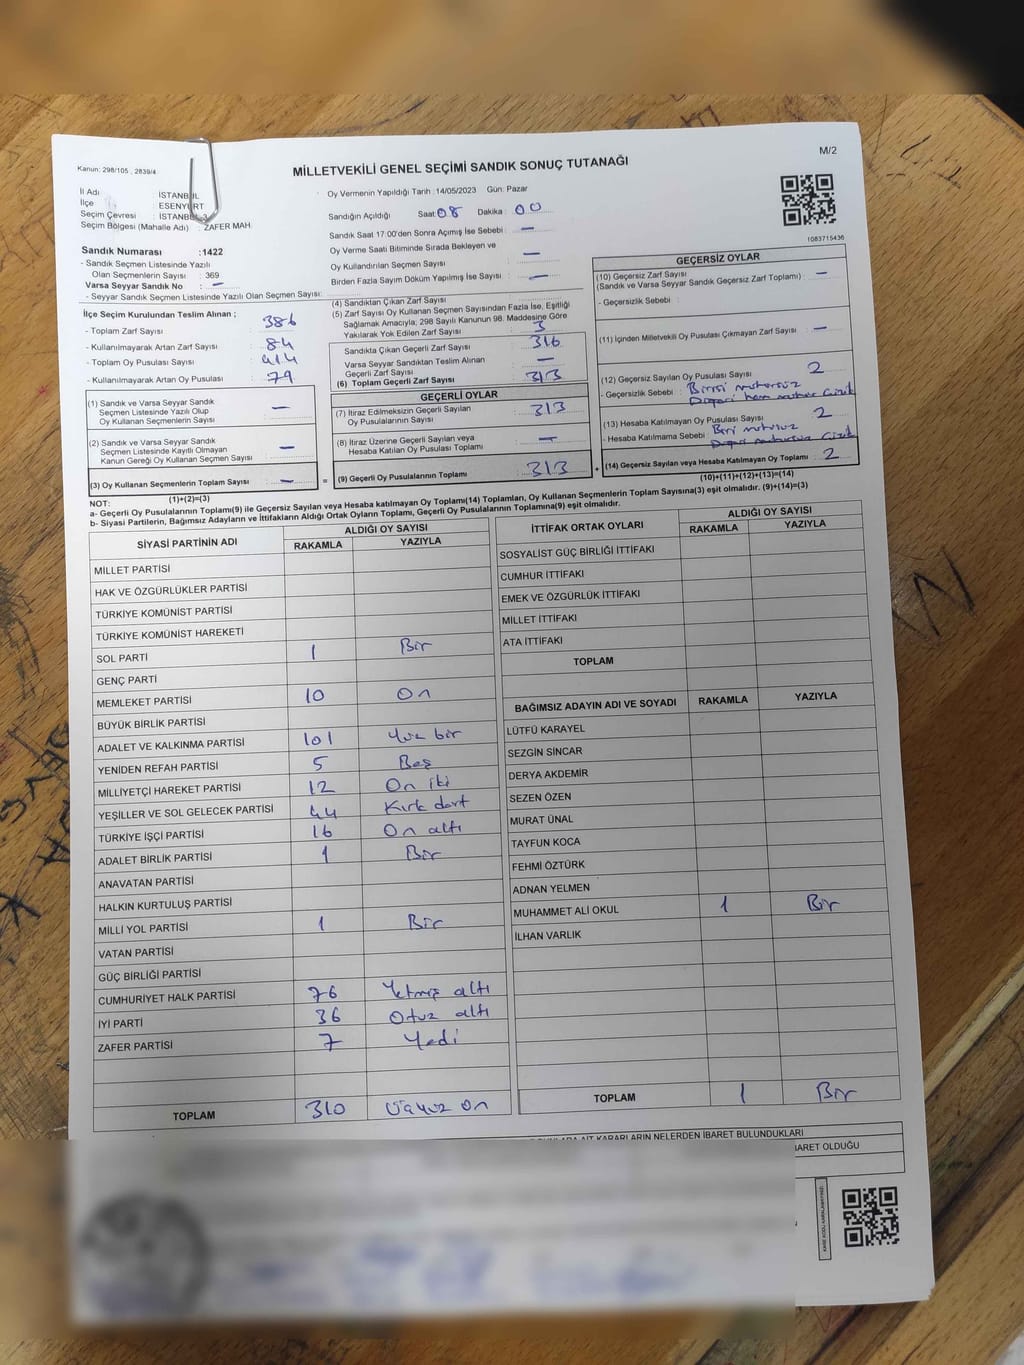 Kanun: 298/105 , 2839/4
MİLLETVEKİLİ GENEL SEÇİMİ SANDIK SONUÇ TUTANAĞI
M/2
İl Adı : İSTANBUL
İlçe : ESENYURT
Seçim Çevresi : İSTANBUL-3
Seçim Bölgesi (Mahalle Adı) : ZAFER MAH.
Sandık Numarası :1422
- Sandık Seçmen Listesinde Yazılı
Olan Seçmenlerin Sayısı : 369
Varsa Seyyar Sandık No : –
- Seyyar Sandık Seçmen Listesinde Yazılı Olan Seçmen Sayısı:
Oy Vermenin Yapıldığı Tarih :14/05/2023 Gün: Pazar
Sandığın Açıldığı Saat: 08 Dakika : 00
Sandık Saat 17:00'den Sonra Açımış İse Sebebi : –
Oy Verme Saati Bitiminde Sırada Bekleyen ve
Oy Kullandırılan Seçmen Sayısı –
Birden Fazla Sayım Döküm Yapılmış İse Sayısı : –
1083715436
İlçe Seçim Kurulundan Teslim Alınan ;
- Toplam Zarf Sayısı : 386
- Kullanılmayarak Artan Zarf Sayısı : 84
- Toplam Oy Pusulası Sayısı : 414
- Kullanılmayarak Artan Oy Pusulası : 79
(1) Sandık ve Varsa Seyyar Sandık
Seçmen Listesinde Yazılı Olup
Oy Kullanan Seçmenlerin Sayısı –
(2) Sandık ve Varsa Seyyar Sandık
Seçmen Listesinde Kayıtlı Olmayan
Kanun Gereği Oy Kullanan Seçmen Sayısı –
(3) Oy Kullanan Seçmenlerin Toplam Sayısı –
(1)+(2)=(3)
(4) Sandıktan Çıkan Zarf Sayısı
(5) Zarf Sayısı Oy Kullanan Seçmen Sayısından Fazla İse, Eşitliği
Sağlamak Amacıyla; 298 Sayılı Kanunun 98. Maddesine Göre
Yakılarak Yok Edilen Zarf Sayısı : 3
Sandıkta Çıkan Geçerli Zarf Sayısı 316
Varsa Seyyar Sandıktan Teslim Alınan
Geçerli Zarf Sayısı –
(6) Toplam Geçerli Zarf Sayısı 313
GEÇERLİ OYLAR
(7) İtiraz Edilmeksizin Geçerli Sayılan
Oy Pusulalarının Sayısı 313
(8) İtiraz Üzerine Geçerli Sayılan veya
Hesaba Katılan Oy Pusulası Toplamı –
= (9) Geçerli Oy Pusulalarının Toplamı 313 +
GEÇERSİZ OYLAR
(10) Geçersiz Zarf Sayısı –
(Sandık ve Varsa Seyyar Sandık Geçersiz Zarf Toplamı) :
- Geçersizlik Sebebi :
(11) İçinden Milletvekili Oy Pusulası Çıkmayan Zarf Sayısı –
(12) Geçersiz Sayılan Oy Pusulası Sayısı 2
- Geçersizlik Sebebi : Birisi mühürsüz
(13) Hesaba Katılmayan Oy Pusulası Sayısı 2
- Hesaba Katılmama Sebebi
(14) Geçersiz Sayılan veya Hesaba Katılmayan Oy Toplamı 2
(10)+(11)+(12)+(13)=(14)
NOT:
a- Geçerli Oy Pusulalarının Toplamı(9) ile Geçersiz Sayılan veya Hesaba katılmayan Oy Toplamı(14) Toplamları, Oy Kullanan Seçmenlerin Toplam Sayısına(3) eşit olmalıdır. (9)+(14)=(3)
b- Siyasi Partilerin, Bağımsız Adayların ve İttifakların Aldığı Ortak Oyların Toplamı, Geçerli Oy Pusulalarının Toplamına(9) eşit olmalıdır.
SİYASİ PARTİNİN ADI ALDIĞI OY SAYISI
RAKAMLA YAZIYLA
MİLLET PARTİSİ
HAK VE ÖZGÜRLÜKLER PARTİSİ
TÜRKİYE KOMÜNİST PARTİSİ
TÜRKİYE KOMÜNİST HAREKETİ
SOL PARTİ 1 Bir
GENÇ PARTİ
MEMLEKET PARTİSİ 10 On
BÜYÜK BİRLİK PARTİSİ
ADALET VE KALKINMA PARTİSİ 101 Yüz bir
YENİDEN REFAH PARTİSİ 5 Beş
MİLLİYETÇİ HAREKET PARTİSİ 12 On iki
YEŞİLLER VE SOL GELECEK PARTİSİ 44 Kırk dört
TÜRKİYE İŞÇİ PARTİSİ 16 On altı
ADALET BİRLİK PARTİSİ 1 Bir
ANAVATAN PARTİSİ
HALKIN KURTULUŞ PARTİSİ
MİLLİ YOL PARTİSİ 1 Bir
VATAN PARTİSİ
GÜÇ BİRLİĞİ PARTİSİ
CUMHURİYET HALK PARTİSİ 76 Yetmiş altı
İYİ PARTİ 36 Otuz altı
ZAFER PARTİSİ 7 Yedi
TOPLAM 310 Üçyüz on
İTTİFAK ORTAK OYLARI ALDIĞI OY SAYISI
RAKAMLA YAZIYLA
SOSYALİST GÜÇ BİRLİĞİ İTTİFAKI
CUMHUR İTTİFAKI
EMEK VE ÖZGÜRLÜK İTTİFAKI
MİLLET İTTİFAKI
ATA İTTİFAKI
TOPLAM
BAĞIMSIZ ADAYIN ADI VE SOYADI RAKAMLA YAZIYLA
LÜTFÜ KARAYEL
SEZGİN SİNCAR
DERYA AKDEMİR
SEZEN ÖZEN
MURAT ÜNAL
TAYFUN KOCA
FEHMİ ÖZTÜRK
ADNAN YELMEN
MUHAMMET ALİ OKUL 1 Bir
İLHAN VARLIK
TOPLAM 1 Bir
AİT KARARLARIN NELERDEN İBARET BULUNDUKLARI
İBARET OLDUĞU